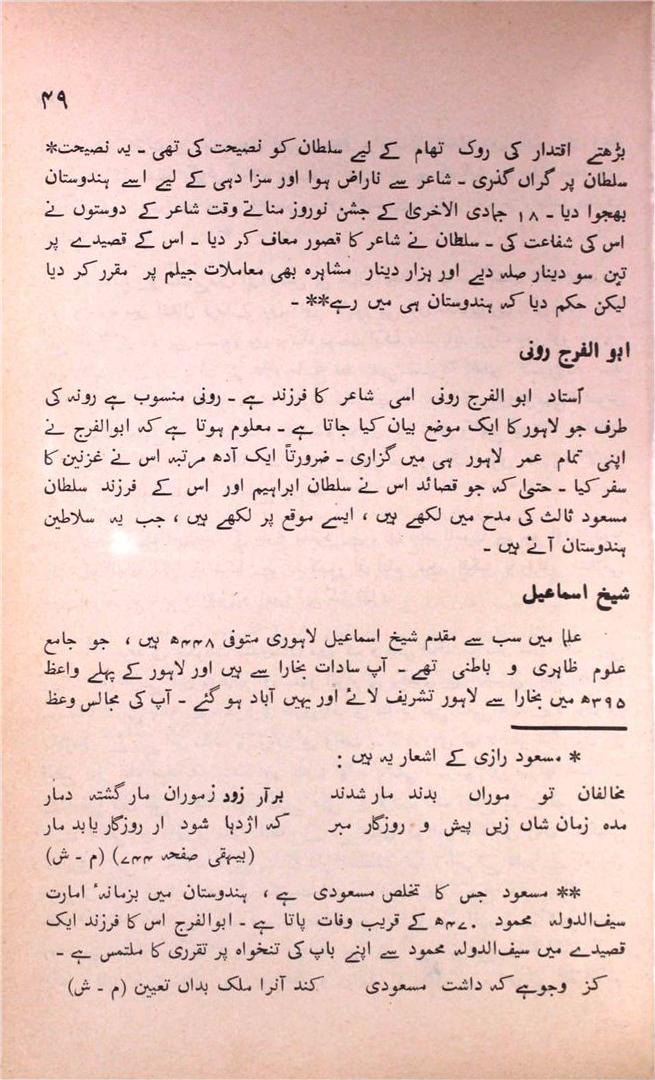 ۴۹
بڑھتے اقتدار کی روک تھام کے لیے سلطان کو نصیحت کی تھی ۔ یہ نصیحت*
سلطان پر گراں گذری ۔ شاعر سے ناراض ہوا اور سزا دہی کے لیے اسے ہندوستان
بھجوا دیا ۔ ۱۸ جادی الاخریٰ کے جشن نوروز مناتے وقت شاعر کے دوستوں نے
اس کی شفاعت کی ۔ سلطان نے شاعر کا قصور معاف کر دیا ۔ اس کے قصیدے پر
تین سو دینار صلہ دیے اور ہزار دینار مشاہرہ بھی معاملات جیلم پر مقرر کر دیا
لیکن حکم دیا کہ ہندوستان ہی میں رہے** ۔
ابو الفرج رونی
اُستاد ابو الفرج رونی اسی شاعر کا فرزند ہے ۔ رونی منسوب ہے رونہ کی
طرف جو لاہور کا ایک موضع بیان کیا جاتا ہے ۔ معلوم ہوتا ہے کہ ابوالفرج نے
اپنی تمام عمر لاہور ہی میں گزاری ۔ ضرورتاً ایک آدھ مرتبہ اس نے غزنین کا
سفر کیا ۔ حتیٰ کہ جو قصائد اس نے سلطان ابراہیم اور اس کے فرزند سلطان
مسعود ثالث کی مدح میں لکھے ہیں ، ایسے موقع پر لکھے ہیں ، جب یہ سلاطین
ہندوستان آئے ہیں ۔
شیخ اسماعیل
علما میں سب سے مقدم شیخ اسماعیل لاہوری متوفی ۴۴۸ھ ہیں ، جو جامع
علوم ظاہری و باطنی تھے ۔ آپ سادات بخارا سے ہیں اور لاہور کے پہلے واعظ
۳۹۵ھ میں بخارا سے لاہور تشریف لائے اور یہیں آباد ہو گئے ۔ آپ کی مجالس وعظ
* مسعود رازی کے اشعار یہ ہیں :
مخالفان تو موراں بدند مار شدند برآر زود زموران مار گشتہ دمار
مدہ زمان شاں زیں پیش و روزگار مبر کہ اژدہا شود ار روزگار یابد مار
(بیہقی صفحہ ۷۴۴) (م ۔ ش)
** مسعود جس کا تخلص مسعودی ہے ، ہندوستان میں بزمانۂ امارت
سیف‌الدولہ محمود ۴۷۰ھ کے قریب وفات پاتا ہے ۔ ابوالفرج اس کا فرزند ایک
قصیدے میں سیف‌الدولہ محمود سے اپنے باپ کی تنخواہ پر تقرری کا ملتمس ہے ۔
کز وجوہے کہ داشت مسعودی کند آنرا ملک بداں تعیین (م ۔ ش)